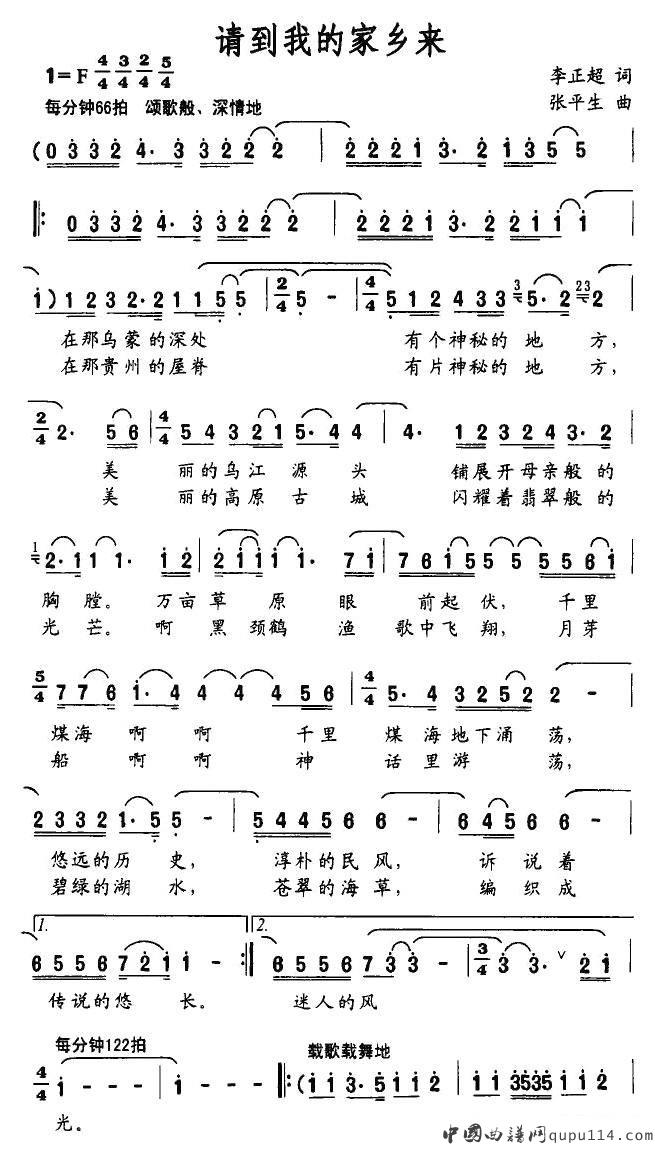 请到我的家乡来
1=F 4/4 3/4 2/4 5/4
李正超 词
每分钟66拍 颂歌般、深情地
张平生 曲
(0 3 3 2 4· 3 3 3 2 2 2 | 2 2 2 1 3· 2 1 3 5 5 |
‖: 0 3 3 2 4· 3 3 3 2 2 2 | 2 2 2 1 3· 2 2 1 1 1 |
1) 1 2 3 2·2 1 1 5 5 | 2/4 5 - | 4/4 5 1 2 4 3 3 3 5·2 23 2 |
在那乌蒙的深处 有个神秘的地方,
在那贵州的屋脊 有片神秘的地方,
2/4 2· 5 6 | 4/4 5 4 3 2 1 5·4 4 | 4· 1 2 3 2 4 3·2 |
美 丽的乌江源头 铺展开母亲般的
美 丽的高原古城 闪耀着翡翠般的
1 2·1 1 1· 1 2 | 2 1 1 1 3· 7 1 | 7 6 1 5 5 5 5 5 6 1 |
胸膛。 万亩草原眼 前起伏, 千里
光芒。 啊黑颈鹤渔 歌中飞翔, 月芽
5/4 7 7 6 1·4 4 4 4 5 6 | 4/4 5·4 3 2 5 2 2 - |
煤海啊啊千里 煤海地下涌荡,
船啊啊神 话里游荡,
2 3 3 2 1·5 5 - | 5 4 4 5 6 6 - | 6 4 5 6 6 - |
悠远的历史, 淳朴的民风, 诉说着
碧绿的湖水, 苍翠的海草, 编织成
1. 2.
6 5 5 6 7 2 1 1 - :‖ 6 5 5 6 7 3 3 3 | 3/4 3 3· ∨ 2 1 |
传说的悠长。 迷人的风
每分钟122拍 载歌载舞地
4/4 1 - - - | 1 - - - ‖: (1 1 3·5 1 1 2 | 1 1 3535 1 1 2 |
光。
中国曲谱网qupu114.com